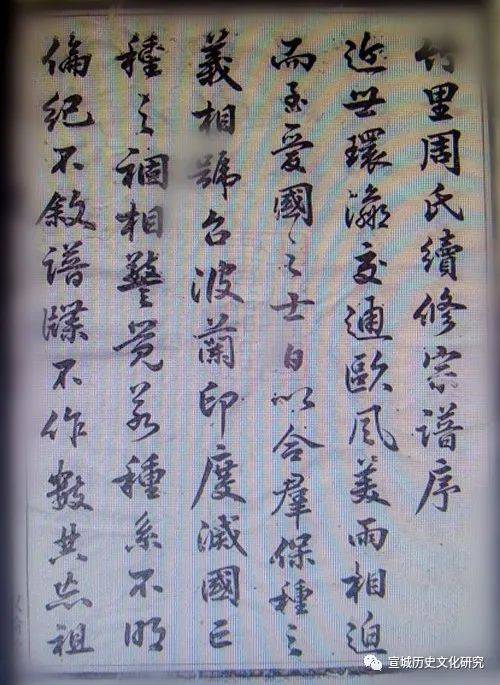 竹里周氏續修宗譜序
近世環瀛交通歐風美雨相迫
而至愛國之士日以合羣保種之
義相號召波蘭印度滅國亡
種之禍相警覺若種系不明
倫紀不敘譜牒不作數典忘祖
宣城历史文化研究